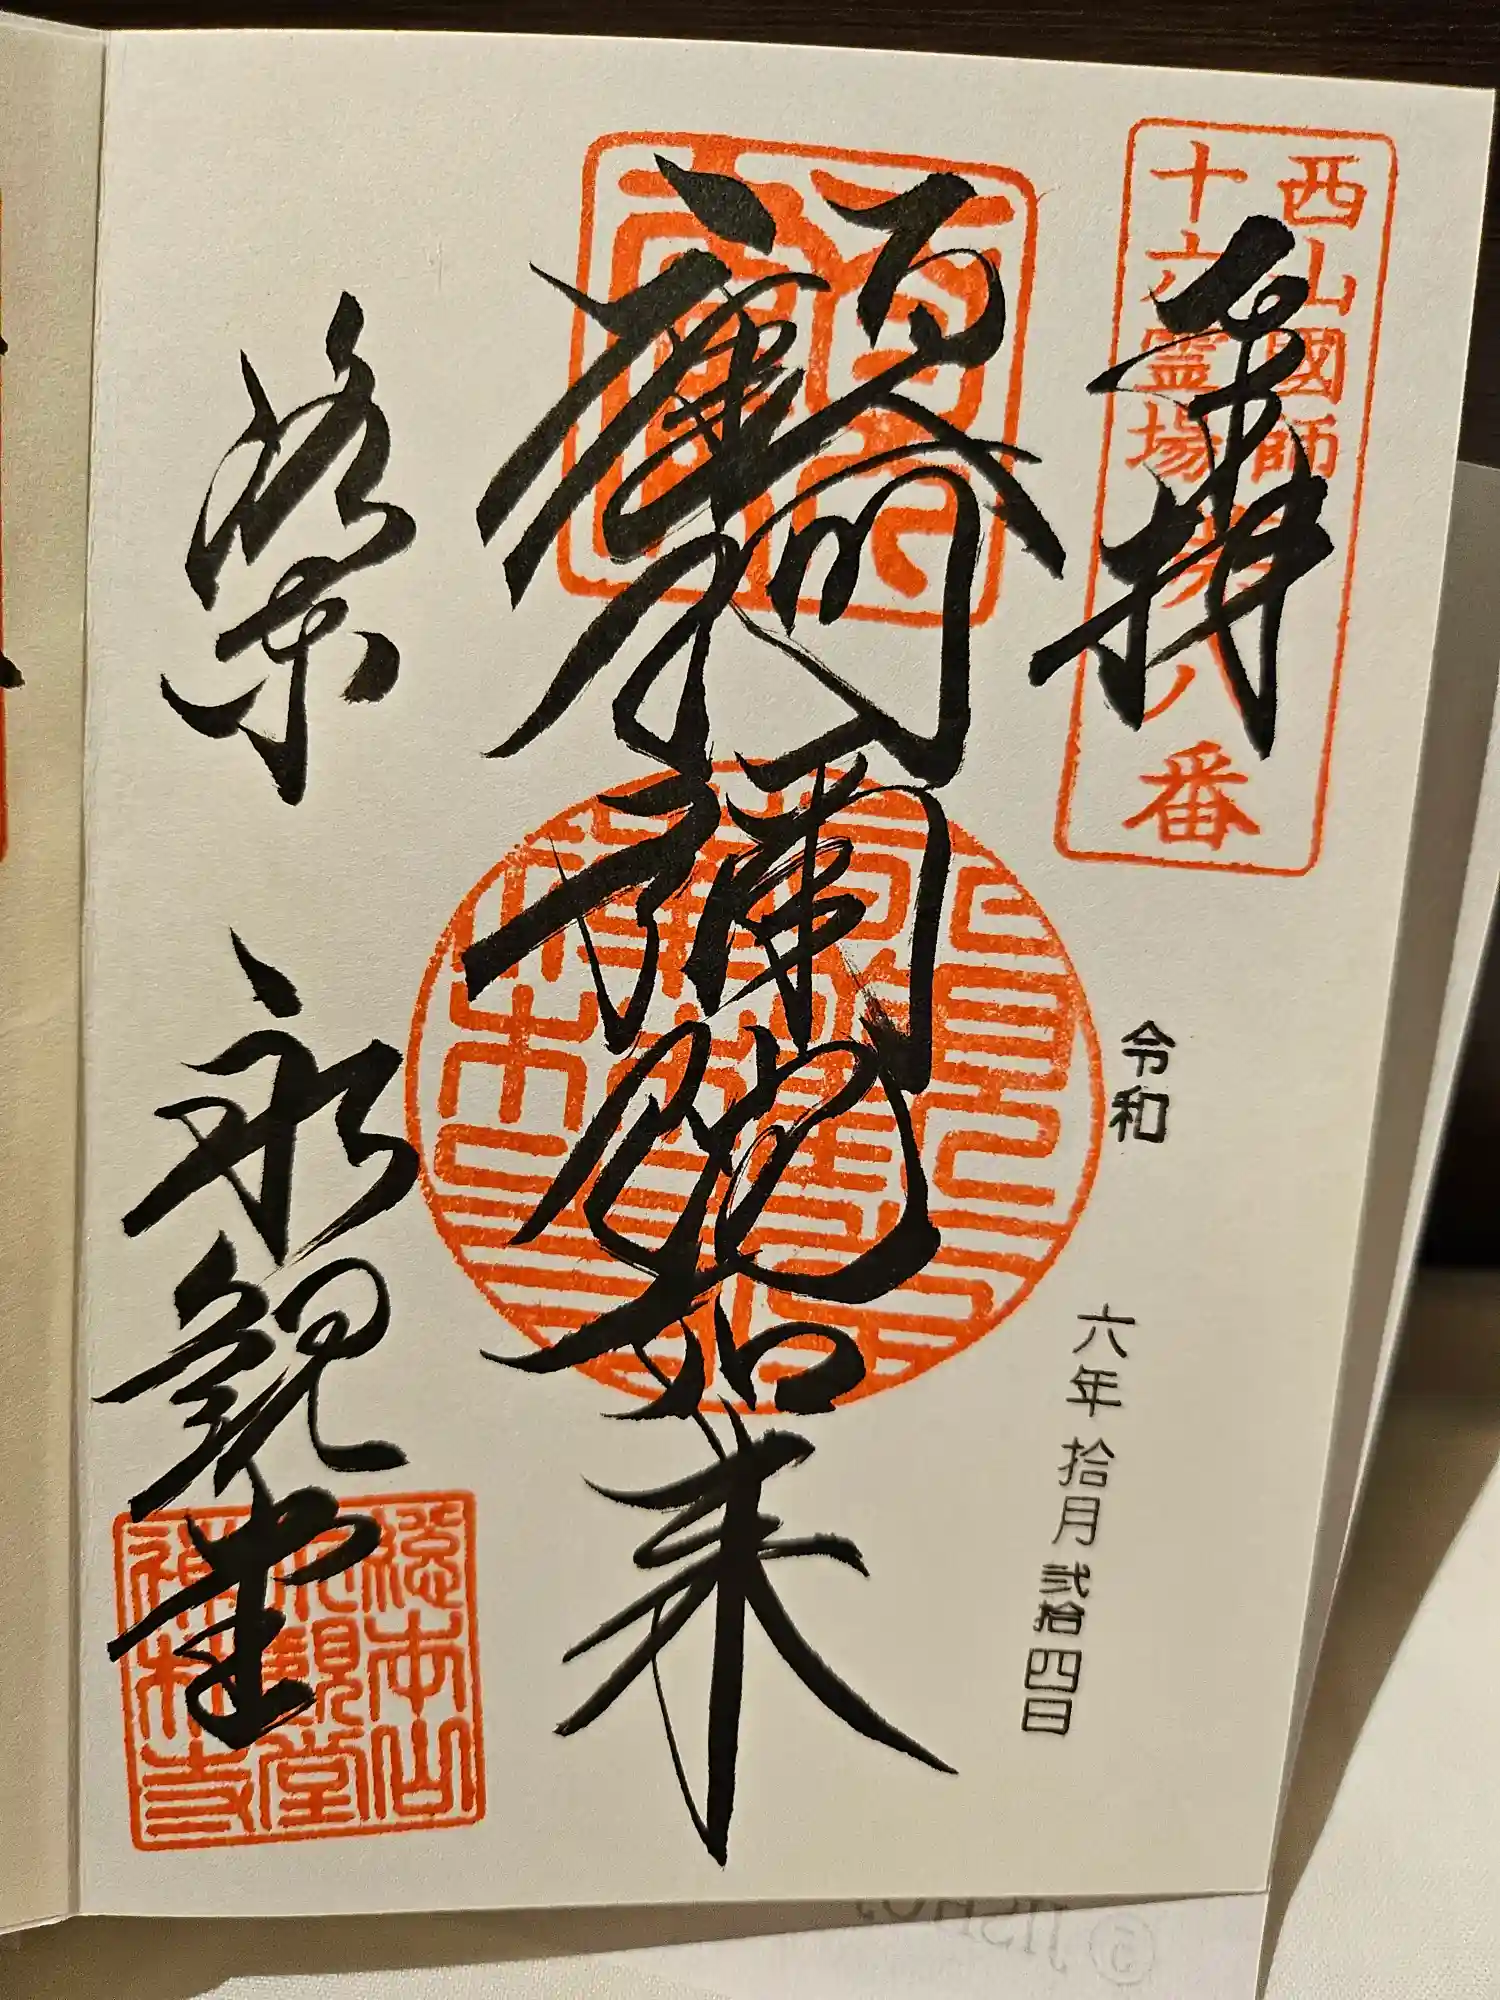 西山國師
十六霊場第八番
奉拝
令和 六年 拾月 弐拾四日
顧阿彌陀如来
洛東 永観堂
總本山
永觀堂
禪林寺